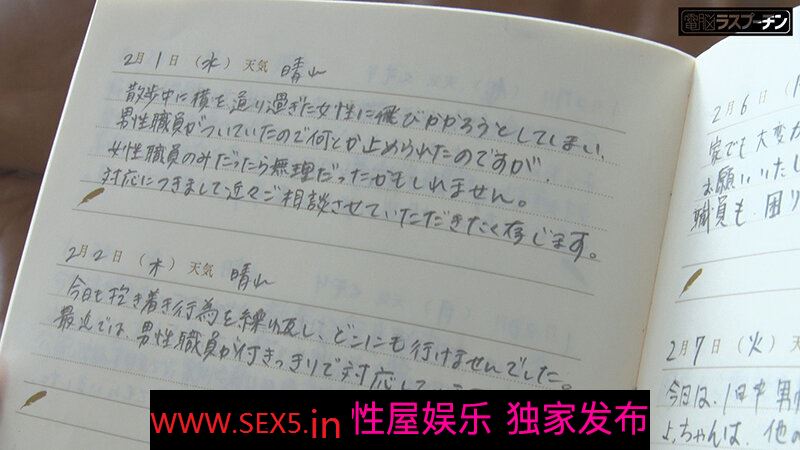 電脳ラスプーチン
2月1日(水) 天気 晴れ
散歩中に横を通り過ぎた女性に飛びかかろうとしてしまい、
男性職員がついていたので何とか止められたのですが、
女性職員のみだったら無理だったかもしれません。
対応につきまして近々ご相談させていただきたく存じます。
2月2日(木) 天気 晴れ
今日も抱き着き行為を繰り返し、どこにも行けませんでした。
最近では、男性職員が付きっきりで対応して
2月6日
家でも大変
お願いいたし
職員も、困り
2月7日(火) 天
今日は、1日中 男
よっちゃんは、他の
WWW.SEX5.in 性屋娱乐 独家发布